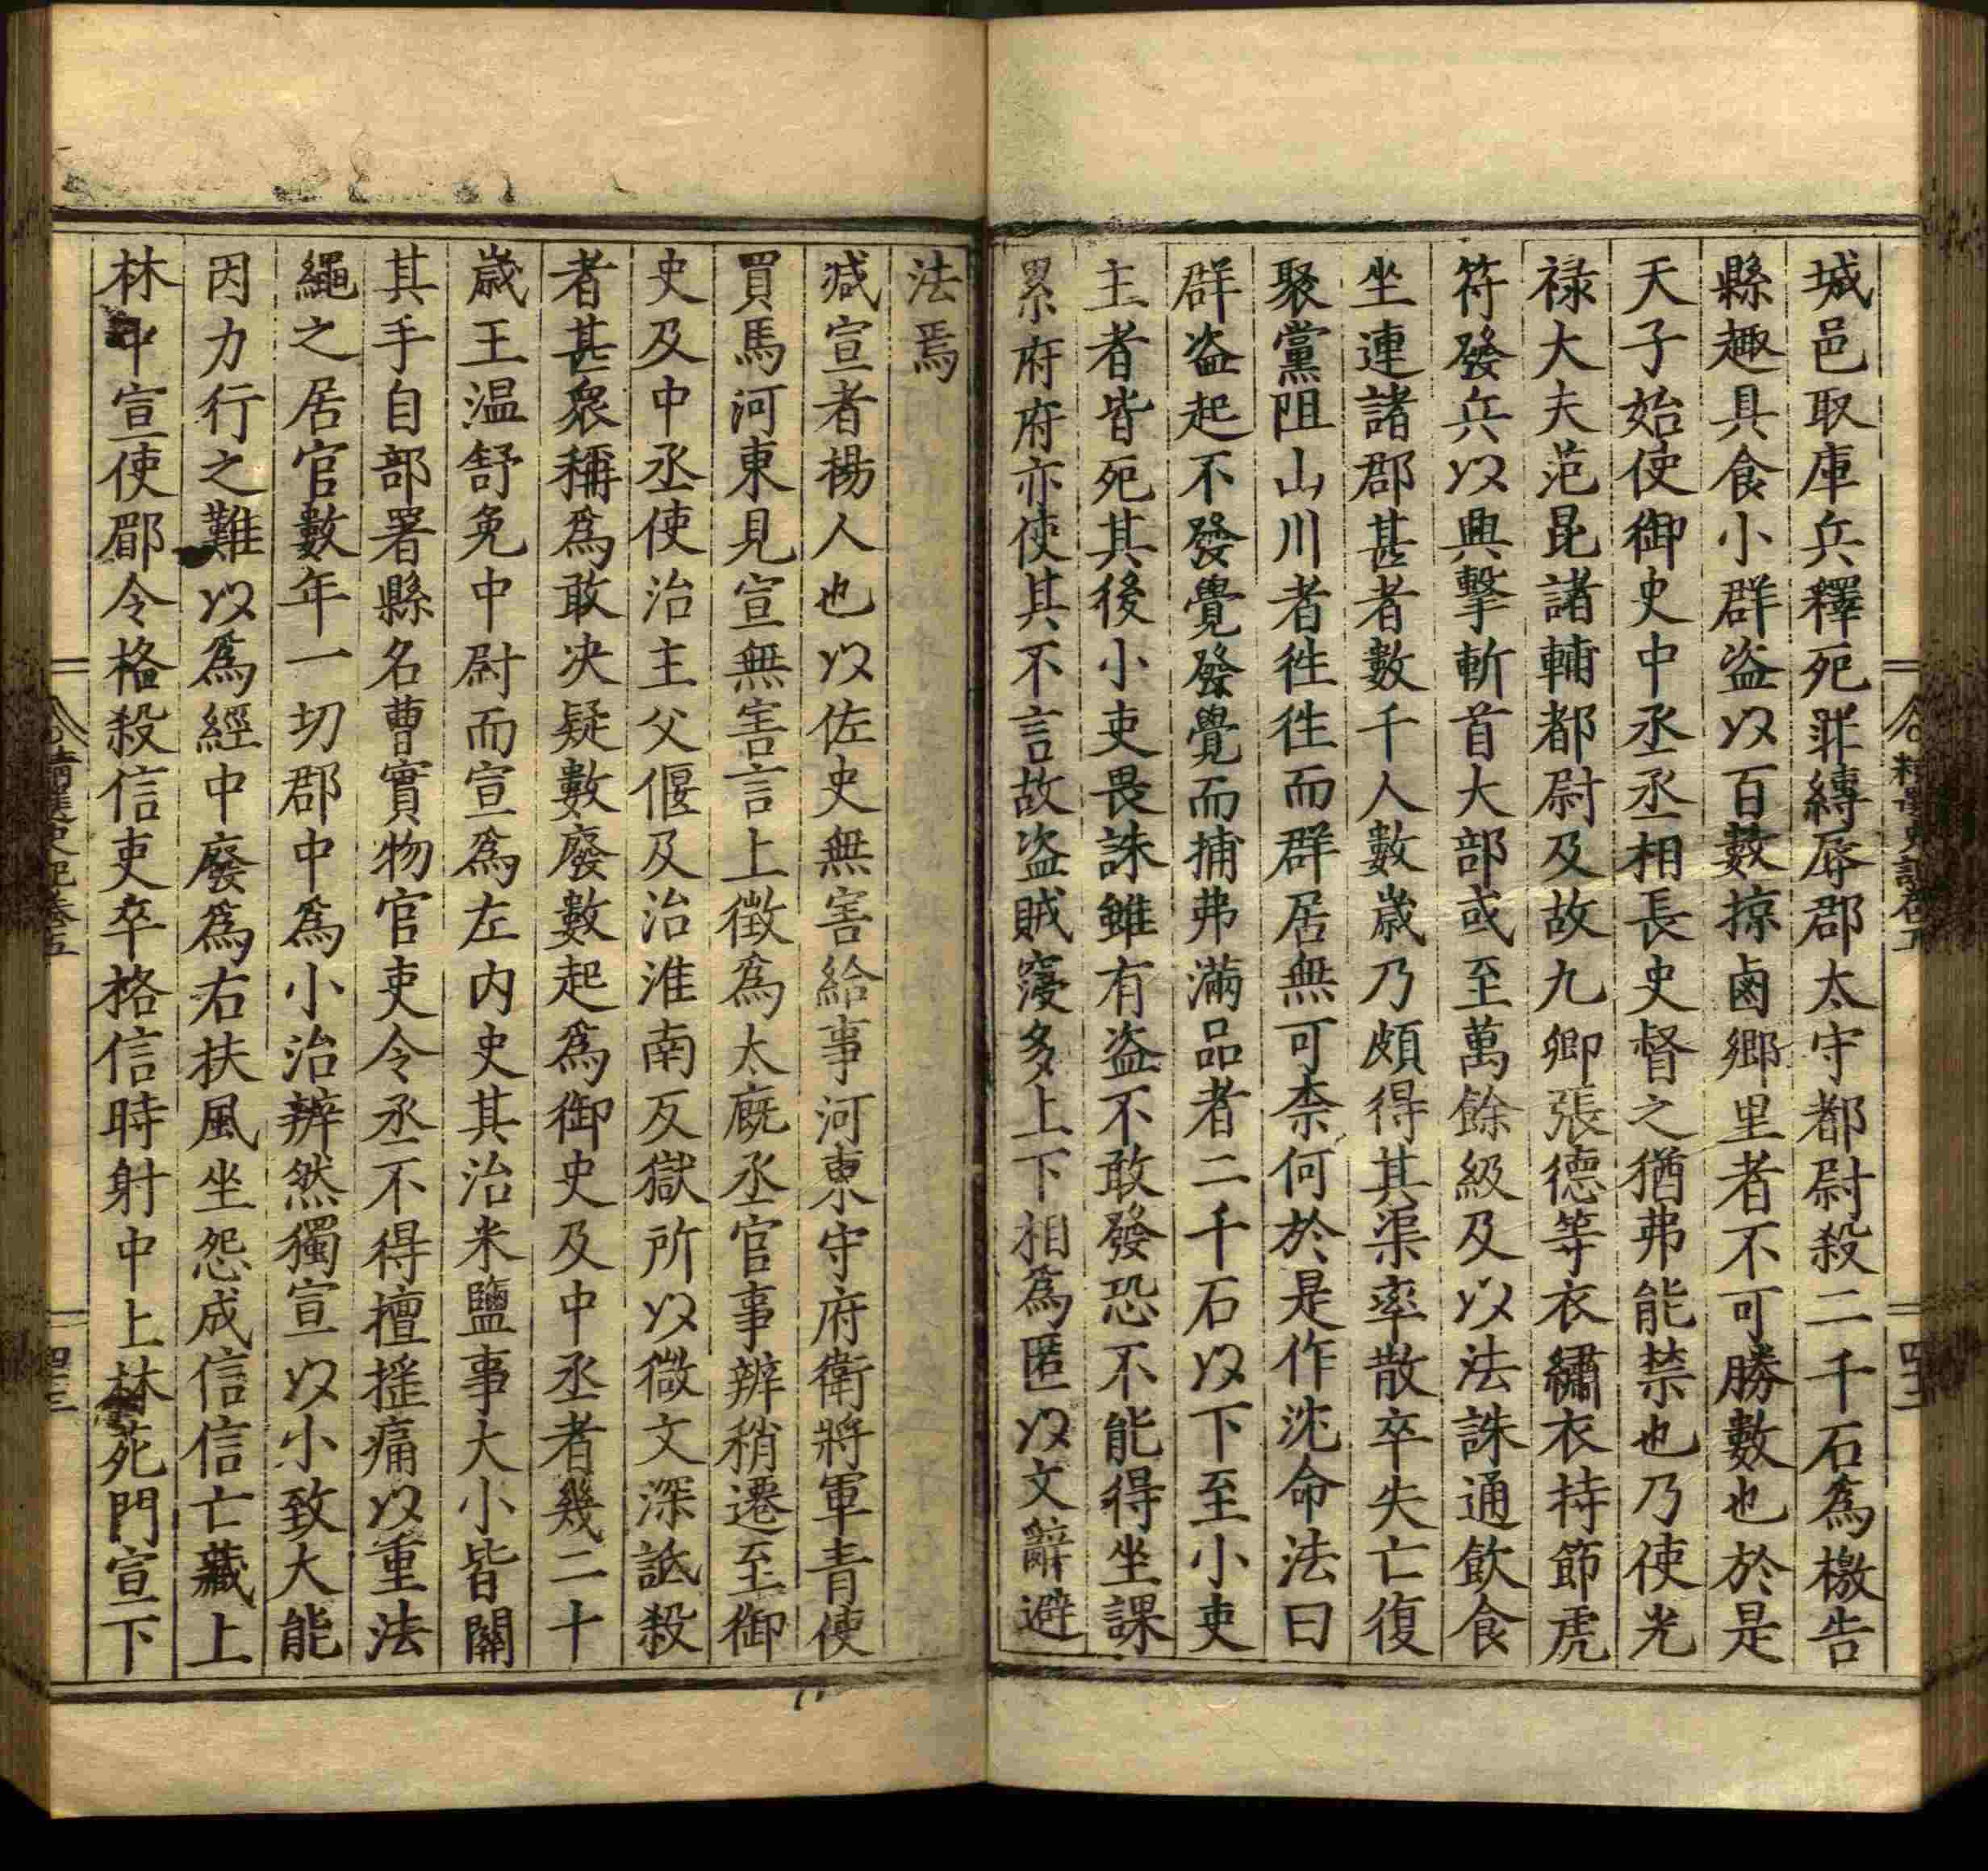 城邑取庫兵釋死罪縛辱郡太守都尉殺二千石為檄告
縣趣具食小群盗以百數掠鹵鄉里者不可勝數也於是
天子始使御史中丞丞相長史督之猶弗能禁也乃使光
禄大夫范昆諸輔都尉及故九卿張德等衣繡衣持節虎
符發兵以興擊斬首大部或至萬餘級及以法誅通飲食
坐連諸郡甚者數千人數歲乃頗得其渠率散卒失亡復
聚黨阻山川者徃徃而群居無可柰何於是作沈命法曰
群盗起不發覺發覺而捕弗滿品者二千石以下至小吏
主者皆死其後小吏畏誅雖有盗不敢發恐不能得坐課
累府府亦使其不言故盗賊寖多上下相為匿以文辭避
法焉
减宣者楊人也以佐史無害給事河東守府衛將軍青使
買馬河東見宣無害言上徴為太廐丞官事辨稍遷至御
史及中丞使治主父偃及治淮南反獄所以微文深詆殺
者甚衆稱為敢决疑數廢數起為御史及中丞者幾二十
歲王温舒免中尉而宣為左内史其治米鹽事大小皆關
其手自部署縣名曹實物官吏令丞不得擅摇痛以重法
繩之居官數年一切郡中為小治辨然獨宣以小致大能
因力行之難以為經中廢為右扶風坐怨成信信亡藏上
林中宣使郿令格殺信吏卒格信時射中上林苑門宣下
精選史記卷五
四二
精選史記卷五
四三